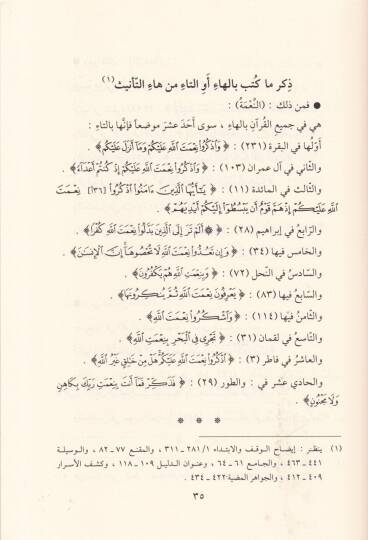 ذكر ما كُتب بالهاءِ أَوِ التاءِ من هاءِ التّأنيث (١)
● فمن ذلك : (النِّعْمَة) :
هي في جميع القُرآنِ بالهاءِ ، سوى أَحَدَ عشرَ موضعاً فإنَّها بالتاءِ :
أَوّلُها في البقرة (٢٣١) : ﴿ وَاذْكُرُوا نِعْمَتَ اللَّهِ عَلَيْكُمْ وَمَا أَنْزَلَ عَلَيْكُمْ ﴾ .
والثاني في آل عمران (١٠٣) : ﴿ وَاذْكُرُوا نِعْمَتَ اللَّهِ عَلَيْكُمْ إِذْ كُنْتُمْ أَعْدَاءً ﴾ .
والثالث في المائدة (١١) : ﴿ يَا أَيُّهَا الَّذِينَ ءَامَنُوا اذْكُرُوا [٣٦أ] نِعْمَتَ
اللَّهِ عَلَيْكُمْ إِذْ هَمَّ قَوْمٌ أَنْ يَبْسُطُوا إِلَيْكُمْ أَيْدِيَهُمْ ﴾ .
والرّابعُ في إبراهيم (٢٨) : ﴿ أَلَمْ تَرَ إِلَى الَّذِينَ بَدَّلُوا نِعْمَتَ اللَّهِ كُفْرًا ﴾ .
والخامس فيها (٣٤) : ﴿ وَإِنْ تَعُدُّوا نِعْمَتَ اللَّهِ لَا تُحْصُوهَا إِنَّ الْإِنْسَانَ ﴾ .
والسادسُ في النّحل (٧٢) : ﴿ وَبِنِعْمَتِ اللَّهِ هُمْ يَكْفُرُونَ ﴾ .
والسّابعُ فيها (٨٣) : ﴿ يَعْرِفُونَ نِعْمَتَ اللَّهِ ثُمَّ يُنْكِرُونَهَا ﴾ .
والثّامنُ فيها (١١٤) : ﴿ وَاشْكُرُوا نِعْمَتَ اللَّهِ ﴾ .
والتّاسعُ في لقمان (٣١) : ﴿ تَجْرِي فِي الْبَحْرِ بِنِعْمَتِ اللَّهِ ﴾ .
والعاشرُ في فاطر (٣) : ﴿ اذْكُرُوا نِعْمَتَ اللَّهِ عَلَيْكُمْ هَلْ مِنْ خَالِقٍ غَيْرُ اللَّهِ ﴾ .
والحادي عشر في : والطور (٢٩) : ﴿ فَذَكِّرْ فَمَا أَنْتَ بِنِعْمَتِ رَبِّكَ بِكَاهِنٍ
وَلَا مَجْنُونٍ ﴾ .
* * *
(١) ينظر : إيضاح الوقف والابتداء ٢٨١/١ - ٣١١ ، والمقنع ٧٧ - ٨٢ ، والوسيلة
٤٤١ - ٤٦٣ ، والجامع ٦١ - ٦٤ ، وعنوان الدليل ١٠٩ - ١١٨ ، وكشف الأسرار
٤٠٩ - ٤١٢ ، والجواهر المضية ٤٢٢ - ٤٣٤ .
٣٥